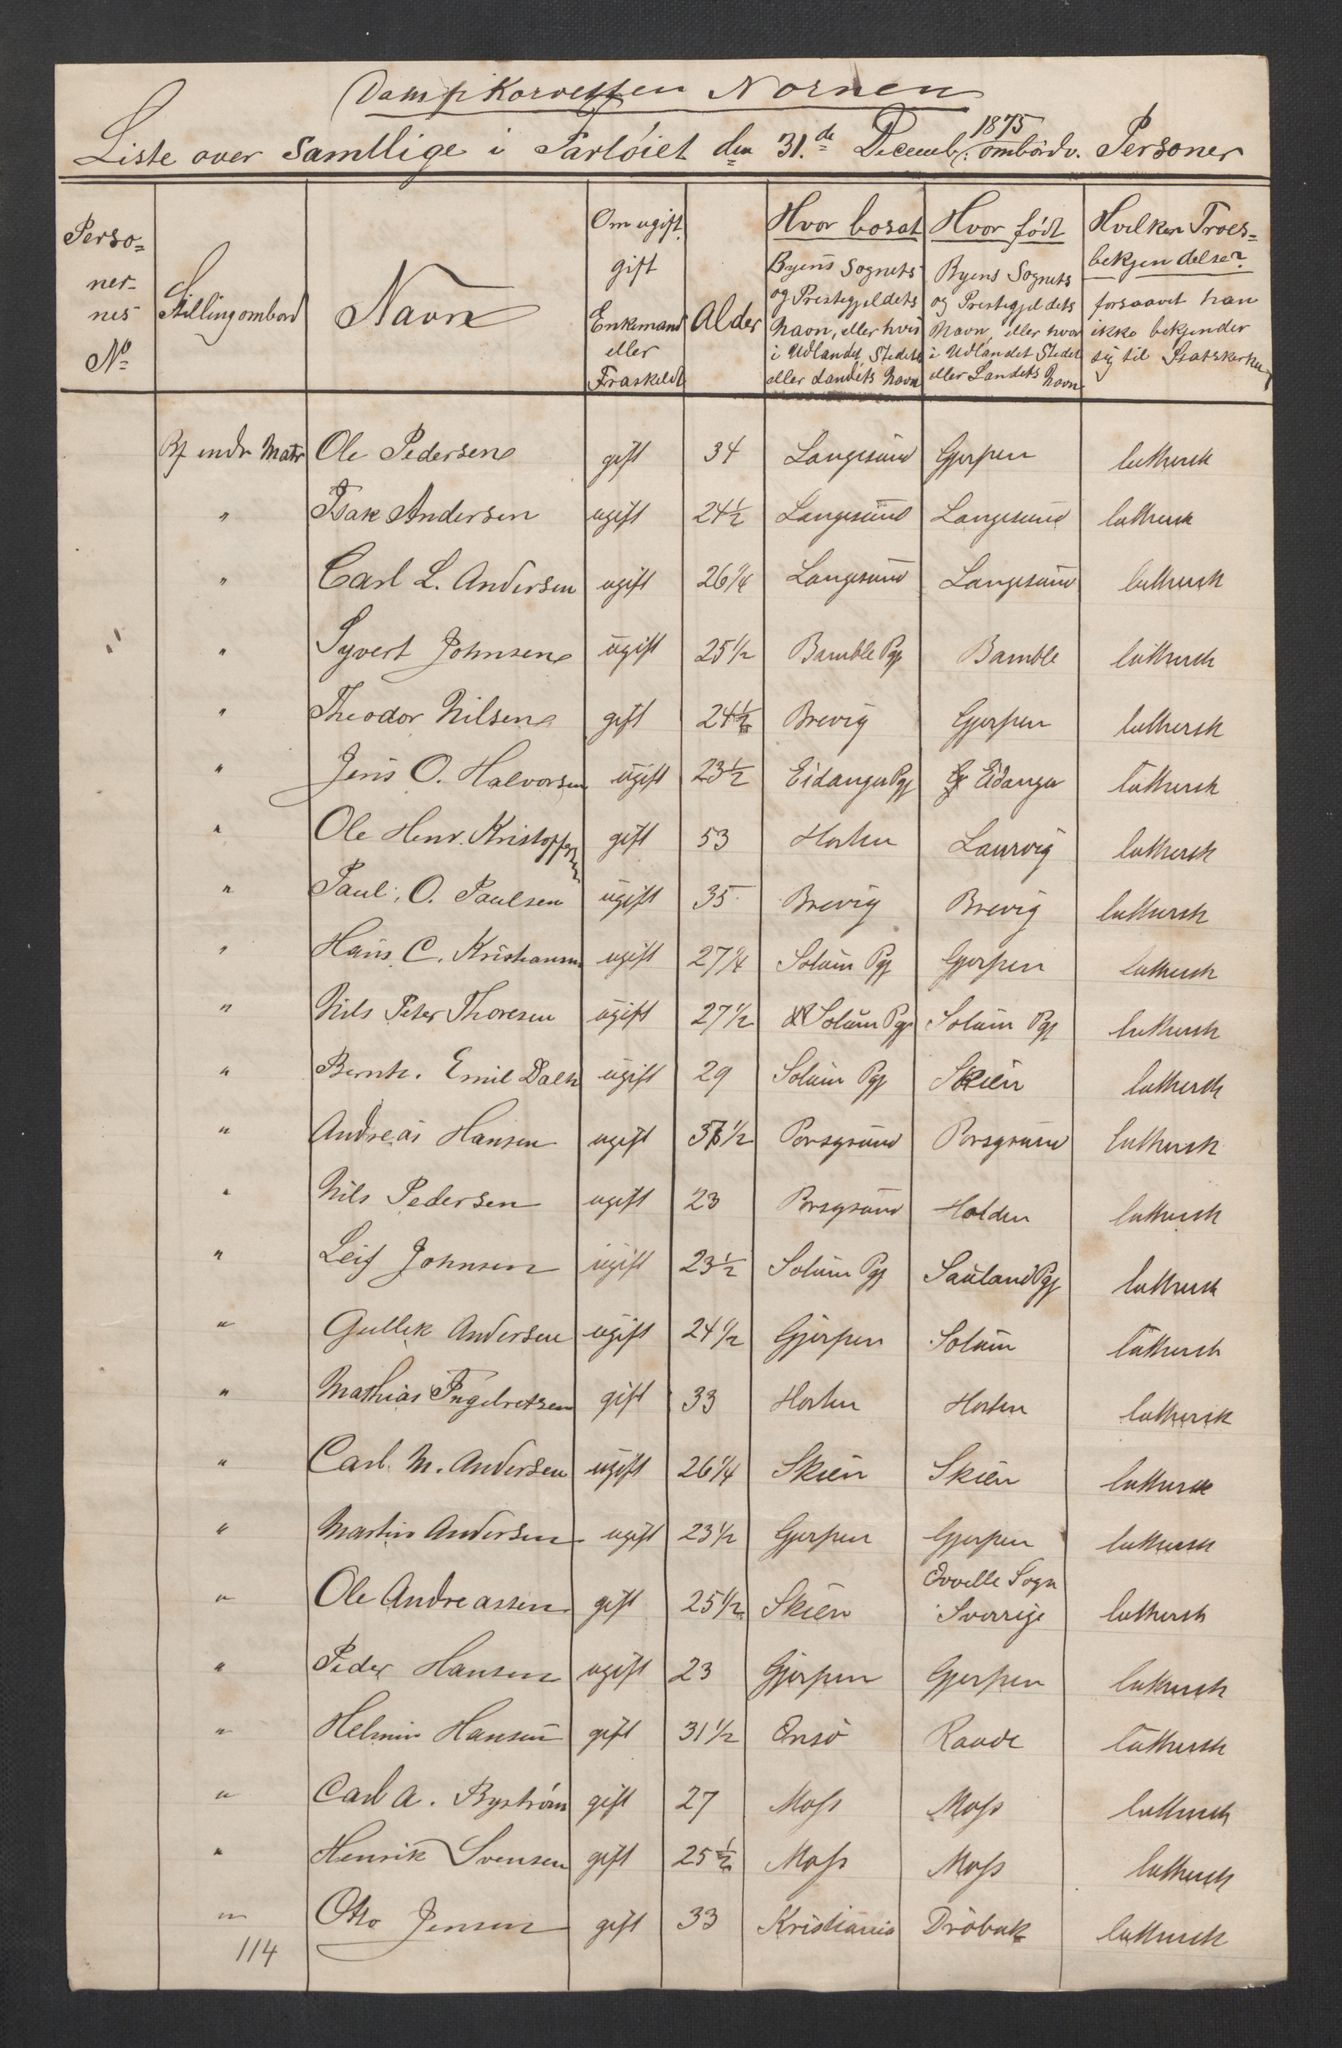 Dampkorvetten Nornen
Liste over samtlige i Fartøiet den 31.de Decemb. 1875 ombordv. Personer
Perso=
ner-
nes
No
Stilling ombord
Navn
Om ugift.
gift
Enkmand
eller
Fraskeldt
Alder
Hvor bosat
Byens Sognets
og Prestegjeldets
Navn, eller hvis
i Udlandet, Stedets
eller Landets Navn
Hvor født
Byens Sognets
og Prestegjeldets
Navn, eller hvis
i Udlandet Stedets
eller Landets Navn
Hvilken Troes=
bekjendelse?
forsaavt han
ikke bekjender
sig til Statskirken
Bf indr Matr Ole Pedersen gift 34 Langesund Gjerpen luthersk
" Isak Andersen ugift 24½ Langesund Langesund luthersk
" Carl L. Andersen ugift 26¼ Langesund Langesund luthersk
" Syvert Johnsen ugift 25½ Bamble Pgj Bamble luthersk
" Theodor Nilsen gift 24½ Brevig Gjerpen luthersk
" Jens O. Halvorsen ugift 23½ Eidanger Pgj Eidanger luthersk
" Ole Henr. Kristoffersen gift 53 Horten Laurvig luthersk
" Paul O. Paulsen ugift 35 Brevig Brevig luthersk
" Hans C. Kristiansen ugift 27¼ Solum Pgj Gjerpen luthersk
" Nils Peter Thoresen ugift 27½ Solum Pgj Solum Pgj luthersk
" Bernh. Emil Dalh ugift 29 Solum Pgj Skien luthersk
" Andreas Hansen ugift ½ Porsgrund Porsgrund luthersk
" Nils Pedersen ugift 23 Porsgrund Holden luthersk
" Leif Johnsen ugift 23½ Solum Pgj Sauland Pgj luthersk
" Gullik Andersen ugift 24½ Gjerpen Solum luthersk
" Mathias Ingebretsen gift 33 Horten Horten luthersk
" Carl M. Andersen ugift 26¼ Skien Skien luthersk
" Martin Andersen ugift 23½ Gjerpen Gjerpen luthersk
" Ole Andreassen gift 25½ Skien Qvvelle Sogn Sverrige luthersk
" Peder Hansen ugift 23 Gjerpen Gjerpen luthersk
" Helmin Hansen gift 31½ Onsö Raade luthersk
" Carl A. Byström gift 27 Moss Moss luthersk
" Henrik Svensen gift 25½ Moss Moss luthersk
" Otto Jensen gift 33 Kristiania Dröbak luthersk
114